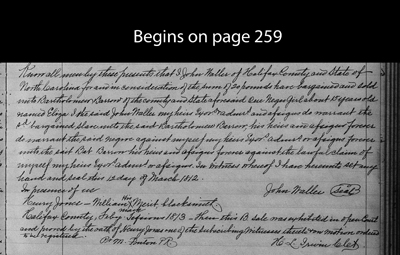 Begins on page 259
Know all men by these presents that I John Waller of Halifax County and State of
North Carolina for and in consideration of the sum of 20 pounds have bargained and sold
unto Bartholomew Barrow of the county and State aforesaid One Negro Girl about 15 years old
named Eliza I the said John Waller my heirs Exors admrs and assigns do warrant the
bargained slave unto the said Bartholomew Barrow, his heirs and assigns forever
do warrant the said Negro against myself my heirs Exors admrs or assigns forever
unto the said Bat Barrow his heirs and assigns forever against the lawful claim of
myself my heirs Exors admrs or assigns. In witness whereof I have hereunto set my
hand and seal this 12 day of March 1812.
In presence of us John Waller Seal
Henry Jones - William his mark Merit Blacksmith
Halifax County, Feby Sessions 1813 - Then this B. sale was exhibited in open Court
and proved by the oath of Henry Jones one of the subscribing Witnesses thereto now motion ordered
to be registered.
M. Pr H L Irwin Clerk